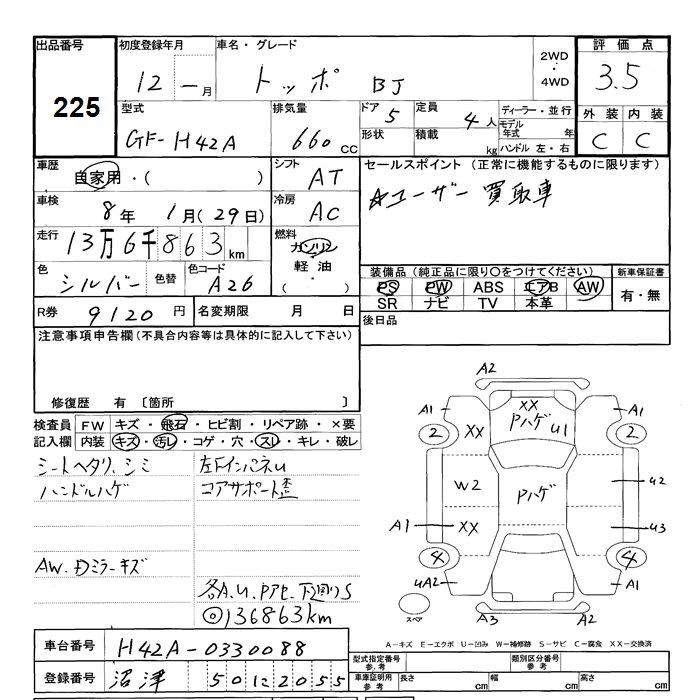 出品番号 初度登録年月 車名・グレード 2WD 評価点
225 12 — 月 トッポ BJ ・ 4WD 3.5
型式 排気量 ドア 5 定員 4人 ディーラー・並行 外装 内装
GF-H42A 660 CC 形状 積載 kg モデル年式 年 C C
ハンドル 左・右
車歴 自家用・( ) シフト AT セールスポイント (正常に機能するものに限ります)
車検 8年 1月(29日) 冷房 AC ☆ユーザー買取車
走行 13万6千863km 燃料 ガソリン
色 シルバー 色替 色コード A26 軽油 ( ) 装備品 (純正品に限り○をつけてください) 新車保証書
PS PW ABS エアB AW 有・無
SR ナビ TV 本革
R券 9120円 名変期限 月 日 後日品
注意事項申告欄(不具合内容等は具体的に記入して下さい)
修復歴 有 〔箇所 〕
検査員 FW キズ・飛石・ヒビ割・リペア跡・×要
記入欄 内装 キズ・汚レ・コゲ・穴・スレ・キレ・破レ
シートヘタリ、シミ 左下インパネU
ハンドルハゲ コアサポート歪
AW、Dミラーキズ
各A.U.Pアセ、下廻りS
◎136863km
A2
A1 XX Pハゲ U1 A1
2 XX 2
W2 Pハゲ U2
A1 XX U3
4 4
UA2 A1
スペア A3 A2
A−キズ E−エクボ U−凹み W−補修跡 S−サビ C−腐食 XX−交換済
車台番号 H42A-0330088 型式指定番号 参考 類別区分番号 参考
登録番号 沼津 50 い 2055 車庫証明用 参考 長さ cm 幅 cm 高さ cm